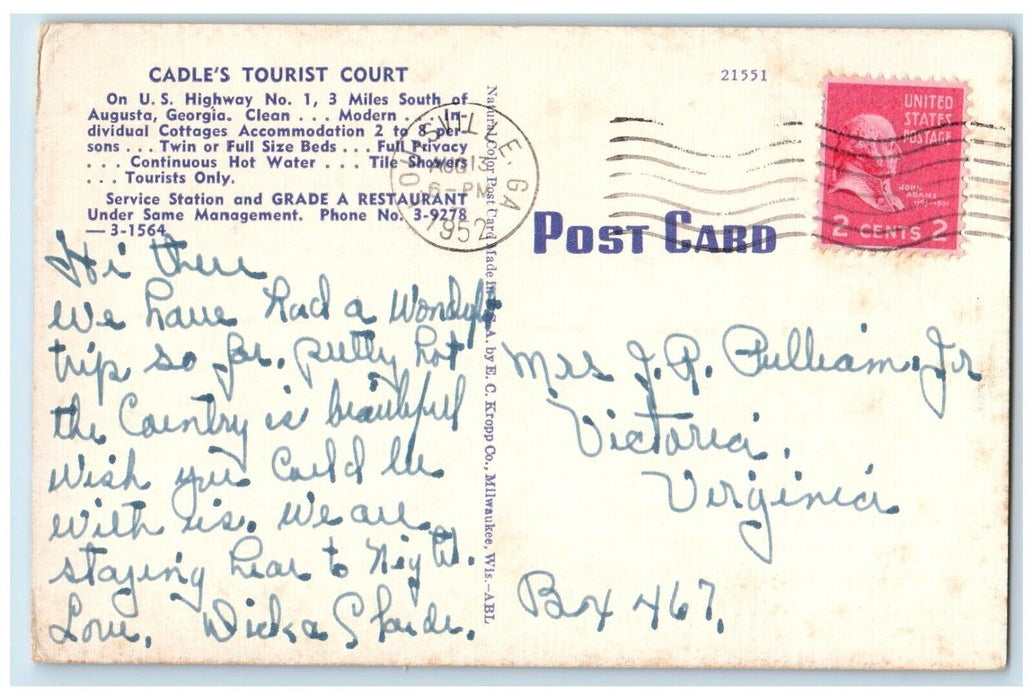 CADLE'S TOURIST COURT
On U. S. Highway No. 1, 3 Miles South of
Augusta, Georgia. Clean . . . Modern . . . In-
dividual Cottages Accommodation 2 to 8 per-
sons . . . Twin or Full Size Beds . . . Full Privacy
. . . Continuous Hot Water . . . Tile Showers
. . . Tourists Only.
Service Station and GRADE A RESTAURANT
Under Same Management. Phone No. 3-9278
— 3-1564
Hi there
We have had a Wonderful
trip so far. pretty hot
the Country is beautifull
Wish you Could be
With us. We are
staying hear to Night.
Love,
Natural Color Post Card Made in U. S. A. by E. C. Kropp Co., Milwaukee, Wis.—ABL
GA
AUG 13
6-PM
1952
21551
POST CARD
UNITED
STATES
POSTAGE
JOHN
ADAMS
2 CENTS 2
Mrs J. R. Pulliam. Jr
Victoria,
Virginia
Box 467,